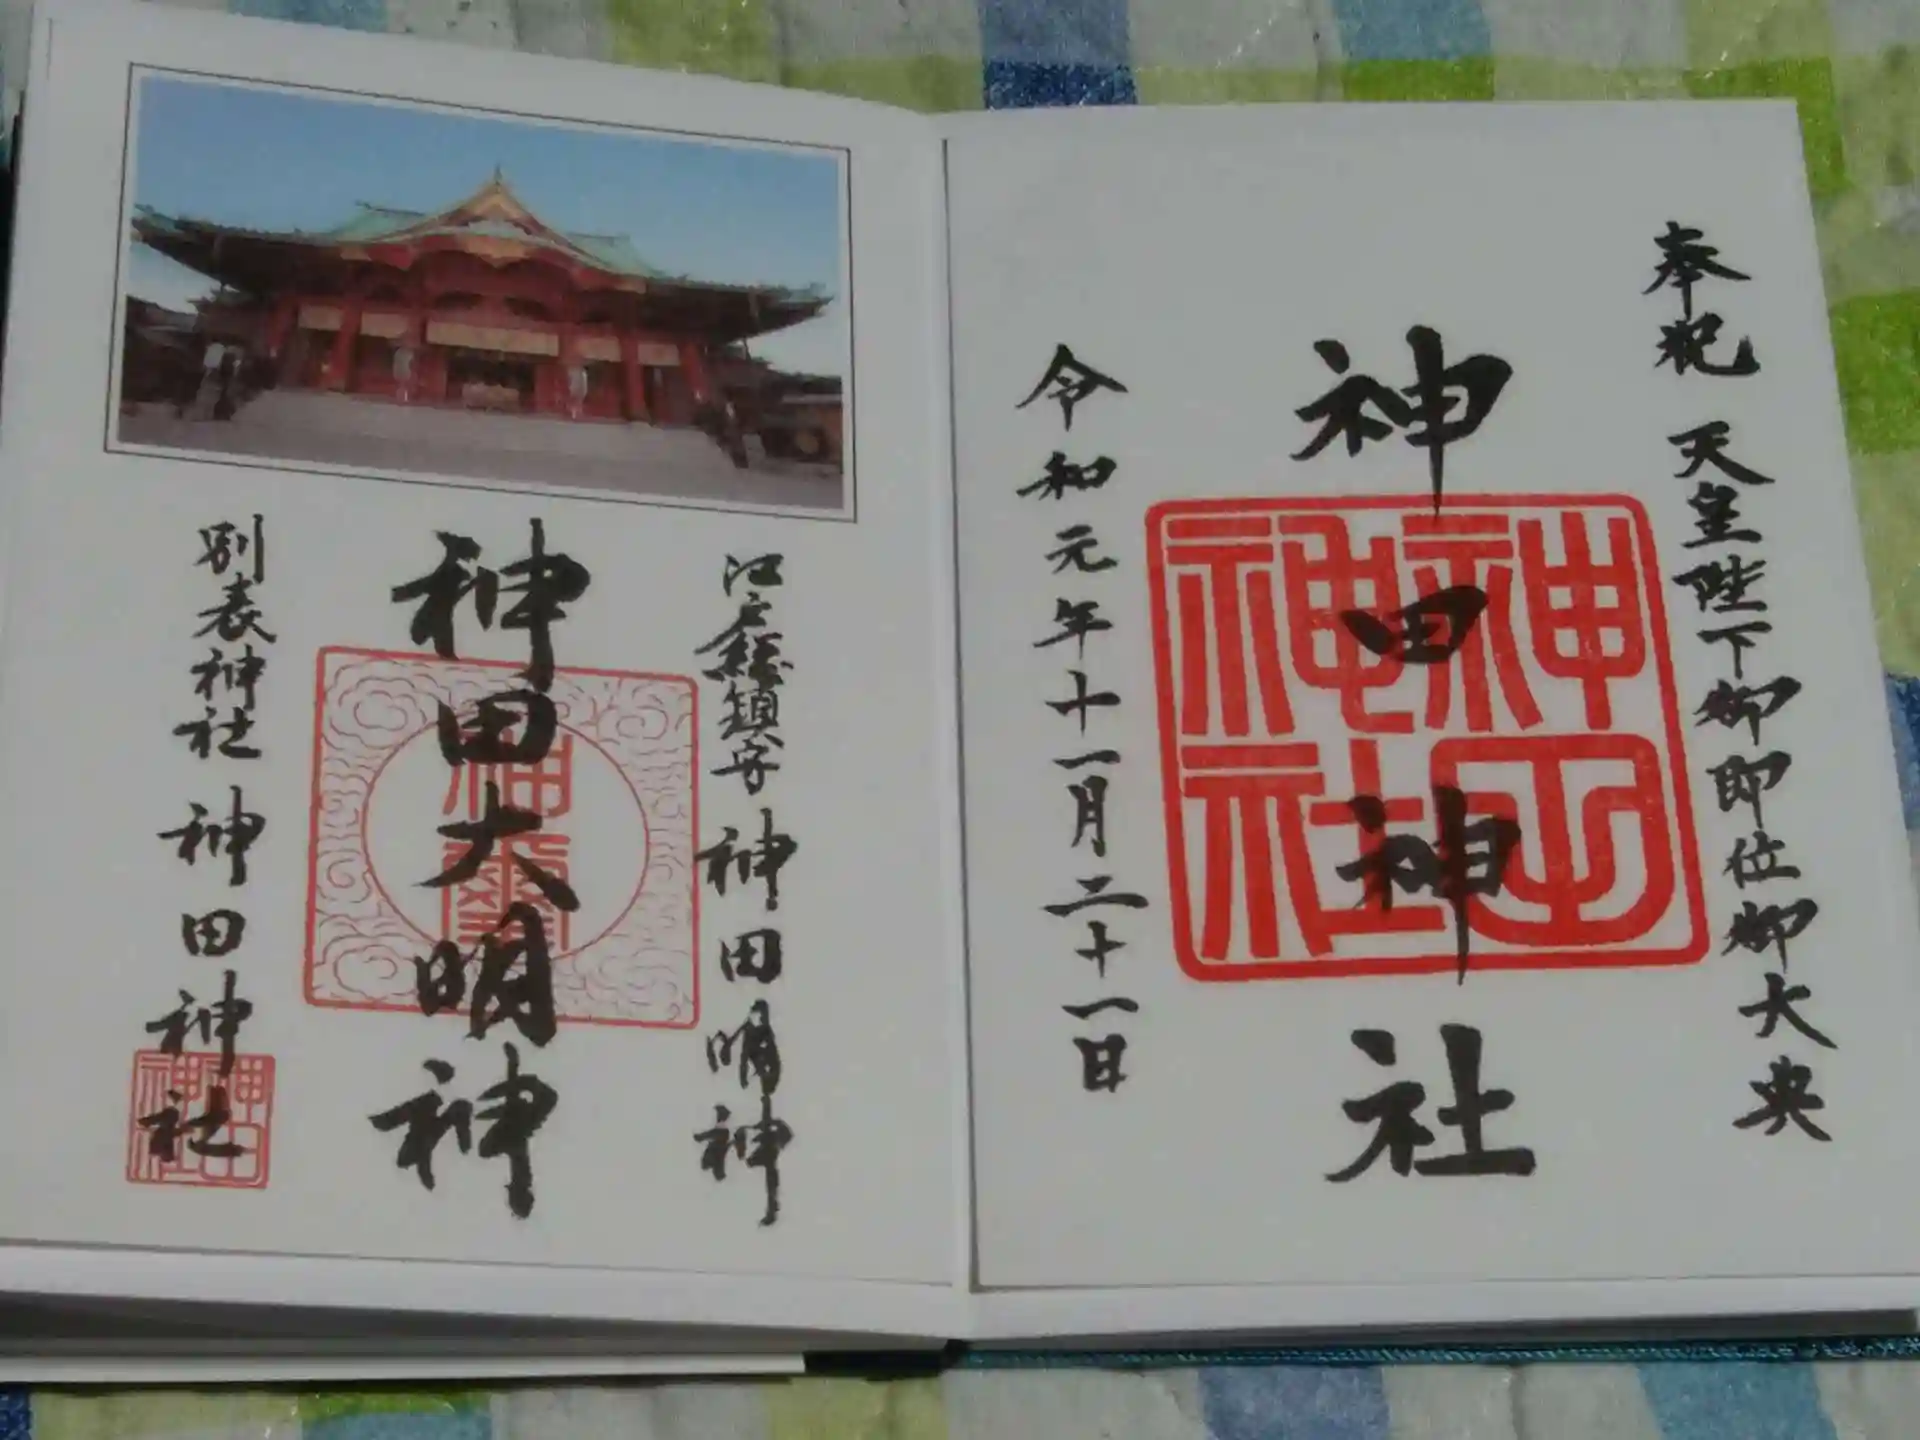 奉祝 天皇陛下御即位御大典
神田神社
令和元年十一月二十一日
神田神社
江戸総鎮守 神田明神
神田大明神
神璽
別表神社 神田神社
神田神社